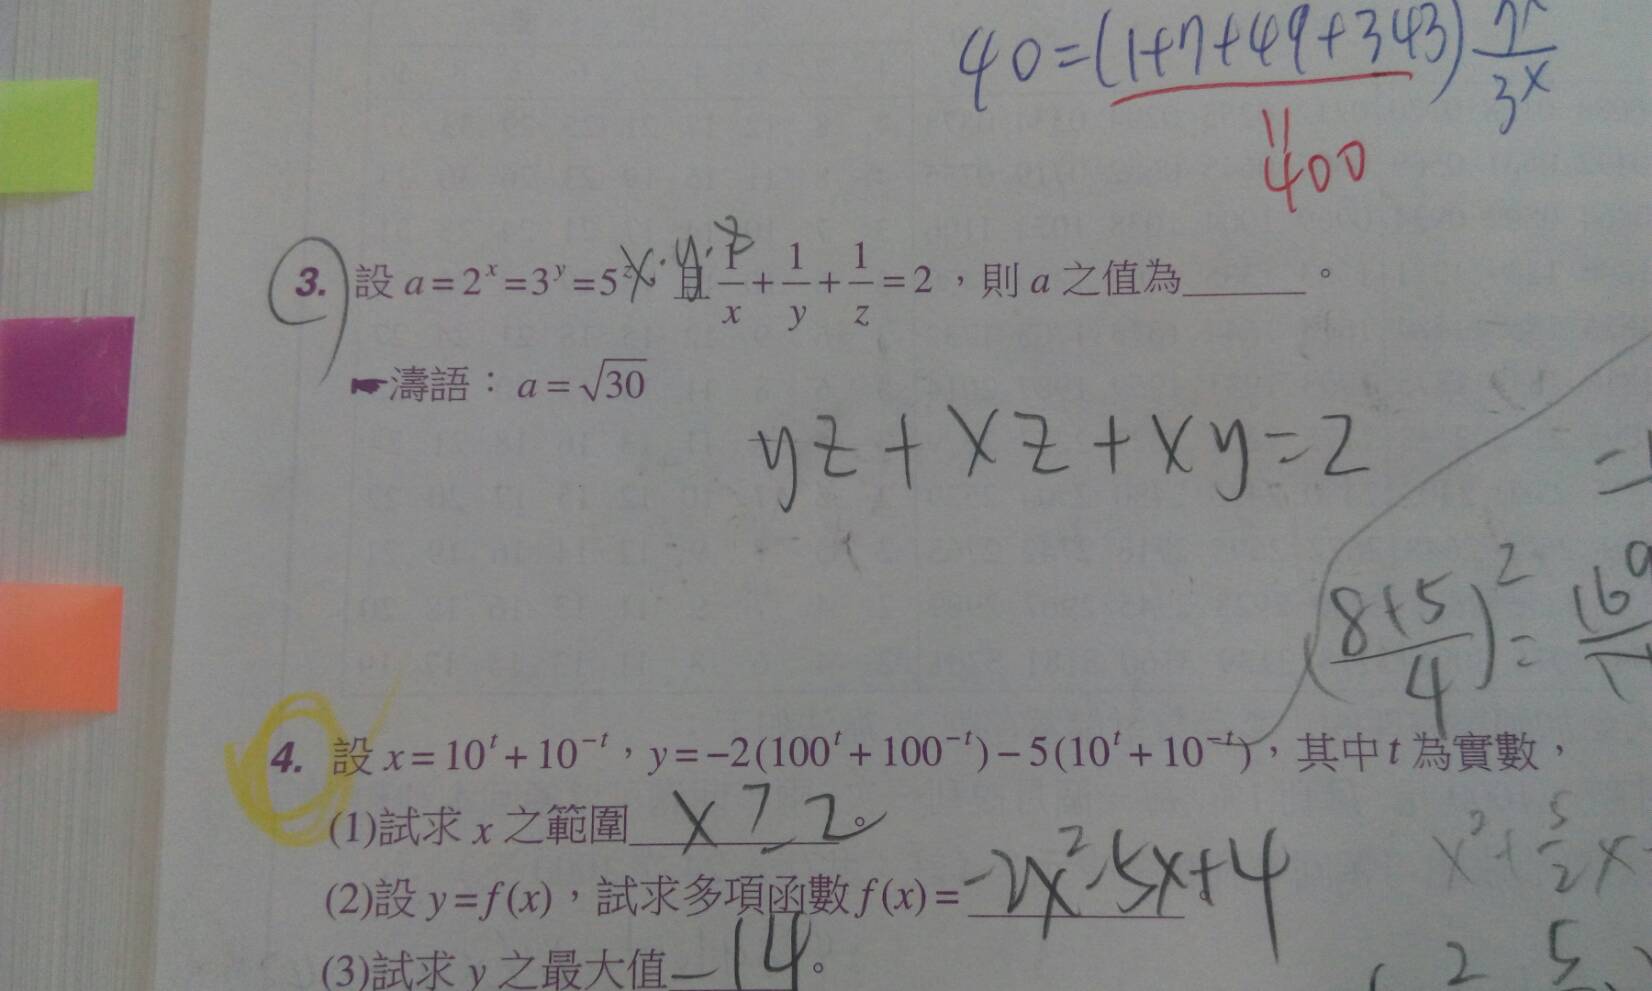 40=(1+7+49+343) 7^x/3^x
400
x·y·z
3. 設 a=2^x=3^y=5^z 且 1/x+1/y+1/z=2，則 a 之值為______。
☛濤語：a=√30
yz+xz+xy=2
((8+5)/4)^2=169
4. 設 x=10^t+10^-t，y=-2(100^t+100^-t)-5(10^t+10^-t)，其中 t 為實數，
(1)試求 x 之範圍 x≥2。
x^2+5/2x
(2)設 y=f(x)，試求多項函數 f(x)=-2x^2-5x+4
(3)試求 y 之最大值 -14。
2 5